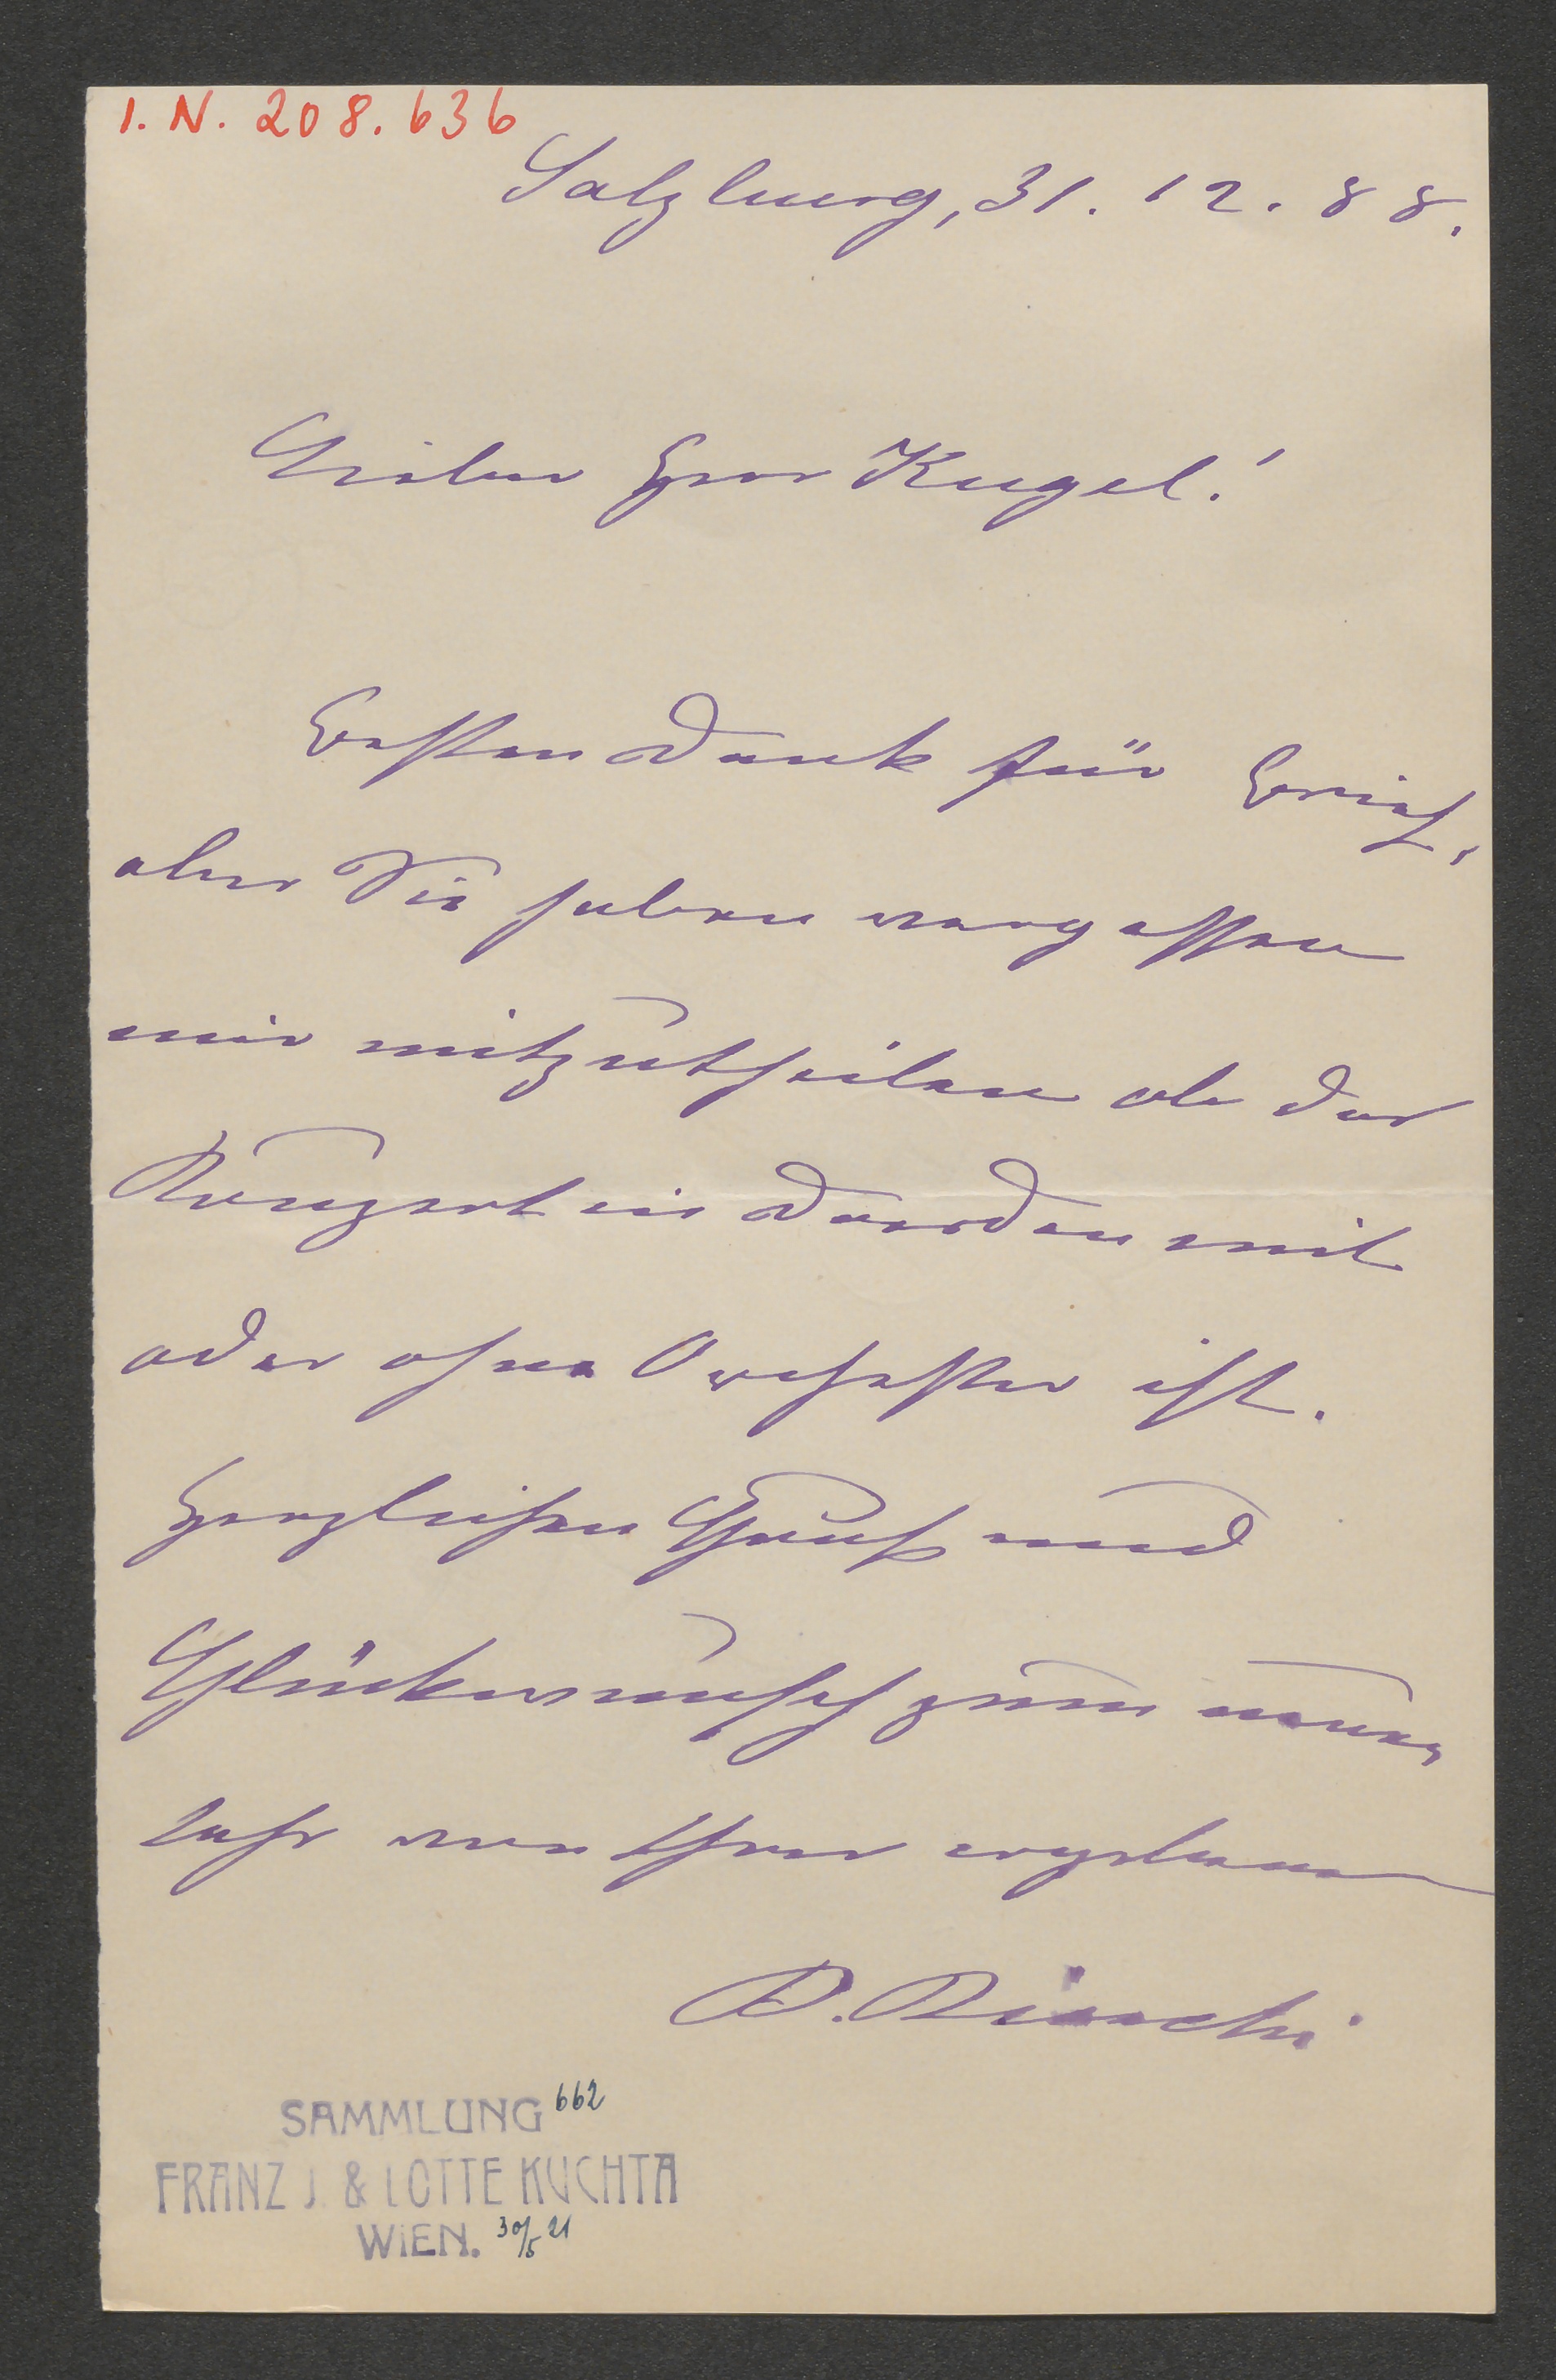 I. N. 208.636
Salzburg, 31. 12. 88.
Lieber Herr Kugel!
Besten Dank für Brief,
aber Sie haben vergessen
mir mitzutheilen ob das
Konzert in Dresden mit
oder ohne Orchester ist.
Herzlichen Gruß und
Glückwunsch zum neuen
Jahr von Ihrer ergebenen
B. Bianchi
SAMMLUNG 662
FRANZ J. & LOTTE KUCHTA
WIEN. 30/5 21